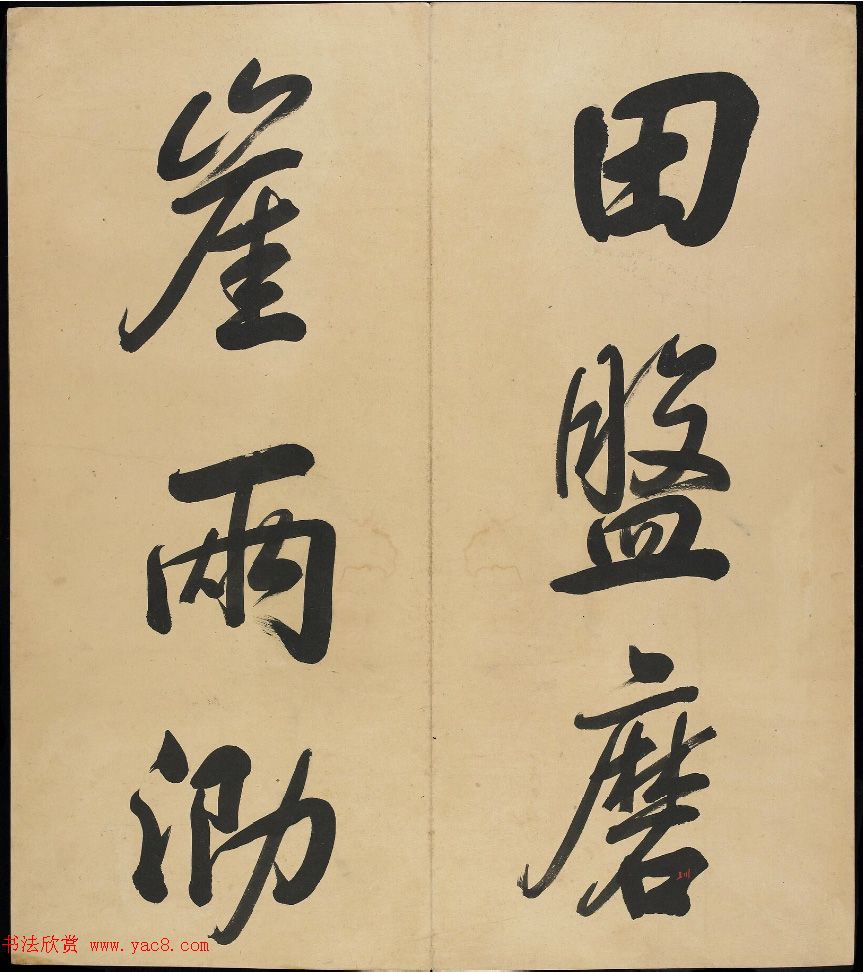 田盤磨
崖兩泐
书法欣赏 www.yac8.com